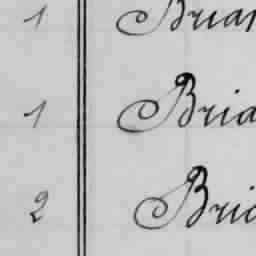 1 Brian
1 Bria
2 Bria